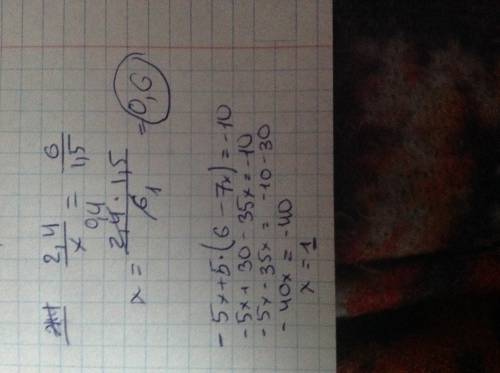 ж) 2,4/x = 6/1,5
x = 2,4 · 1,5 / 6 = 0,6
0,4
1
-5x + 5 · (6 - 7x) = -10
-5x + 30 - 35x = -10
-5x - 35x = -10 - 30
-40x = -40
x = 1